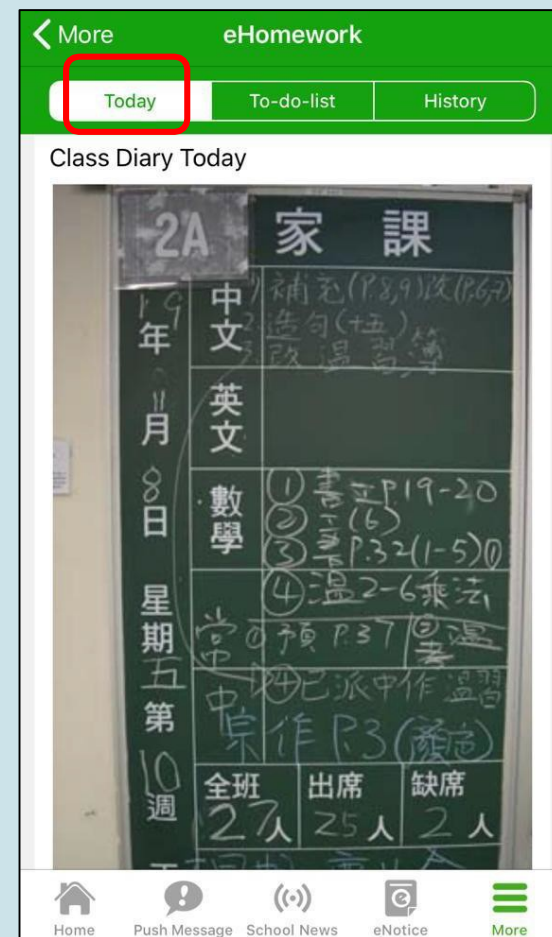 More eHomework
Today To-do-list History
Class Diary Today
2A 家課
19年11月8日 星期五 第10週
中文 1)補充(P.8,9)改(P.6,7)
2.造句(十五)
3.改溫習簿
英文
數學 ① 書立P.19-20
② (6)
③ P.32(1-5)①
④溫2-6乘法
常 ①預 P.37 ②溫
中 ④已派中作溫習
作 P.3
全班 出席 缺席
27人 25人 2人
Home Push Message School News eNotice More